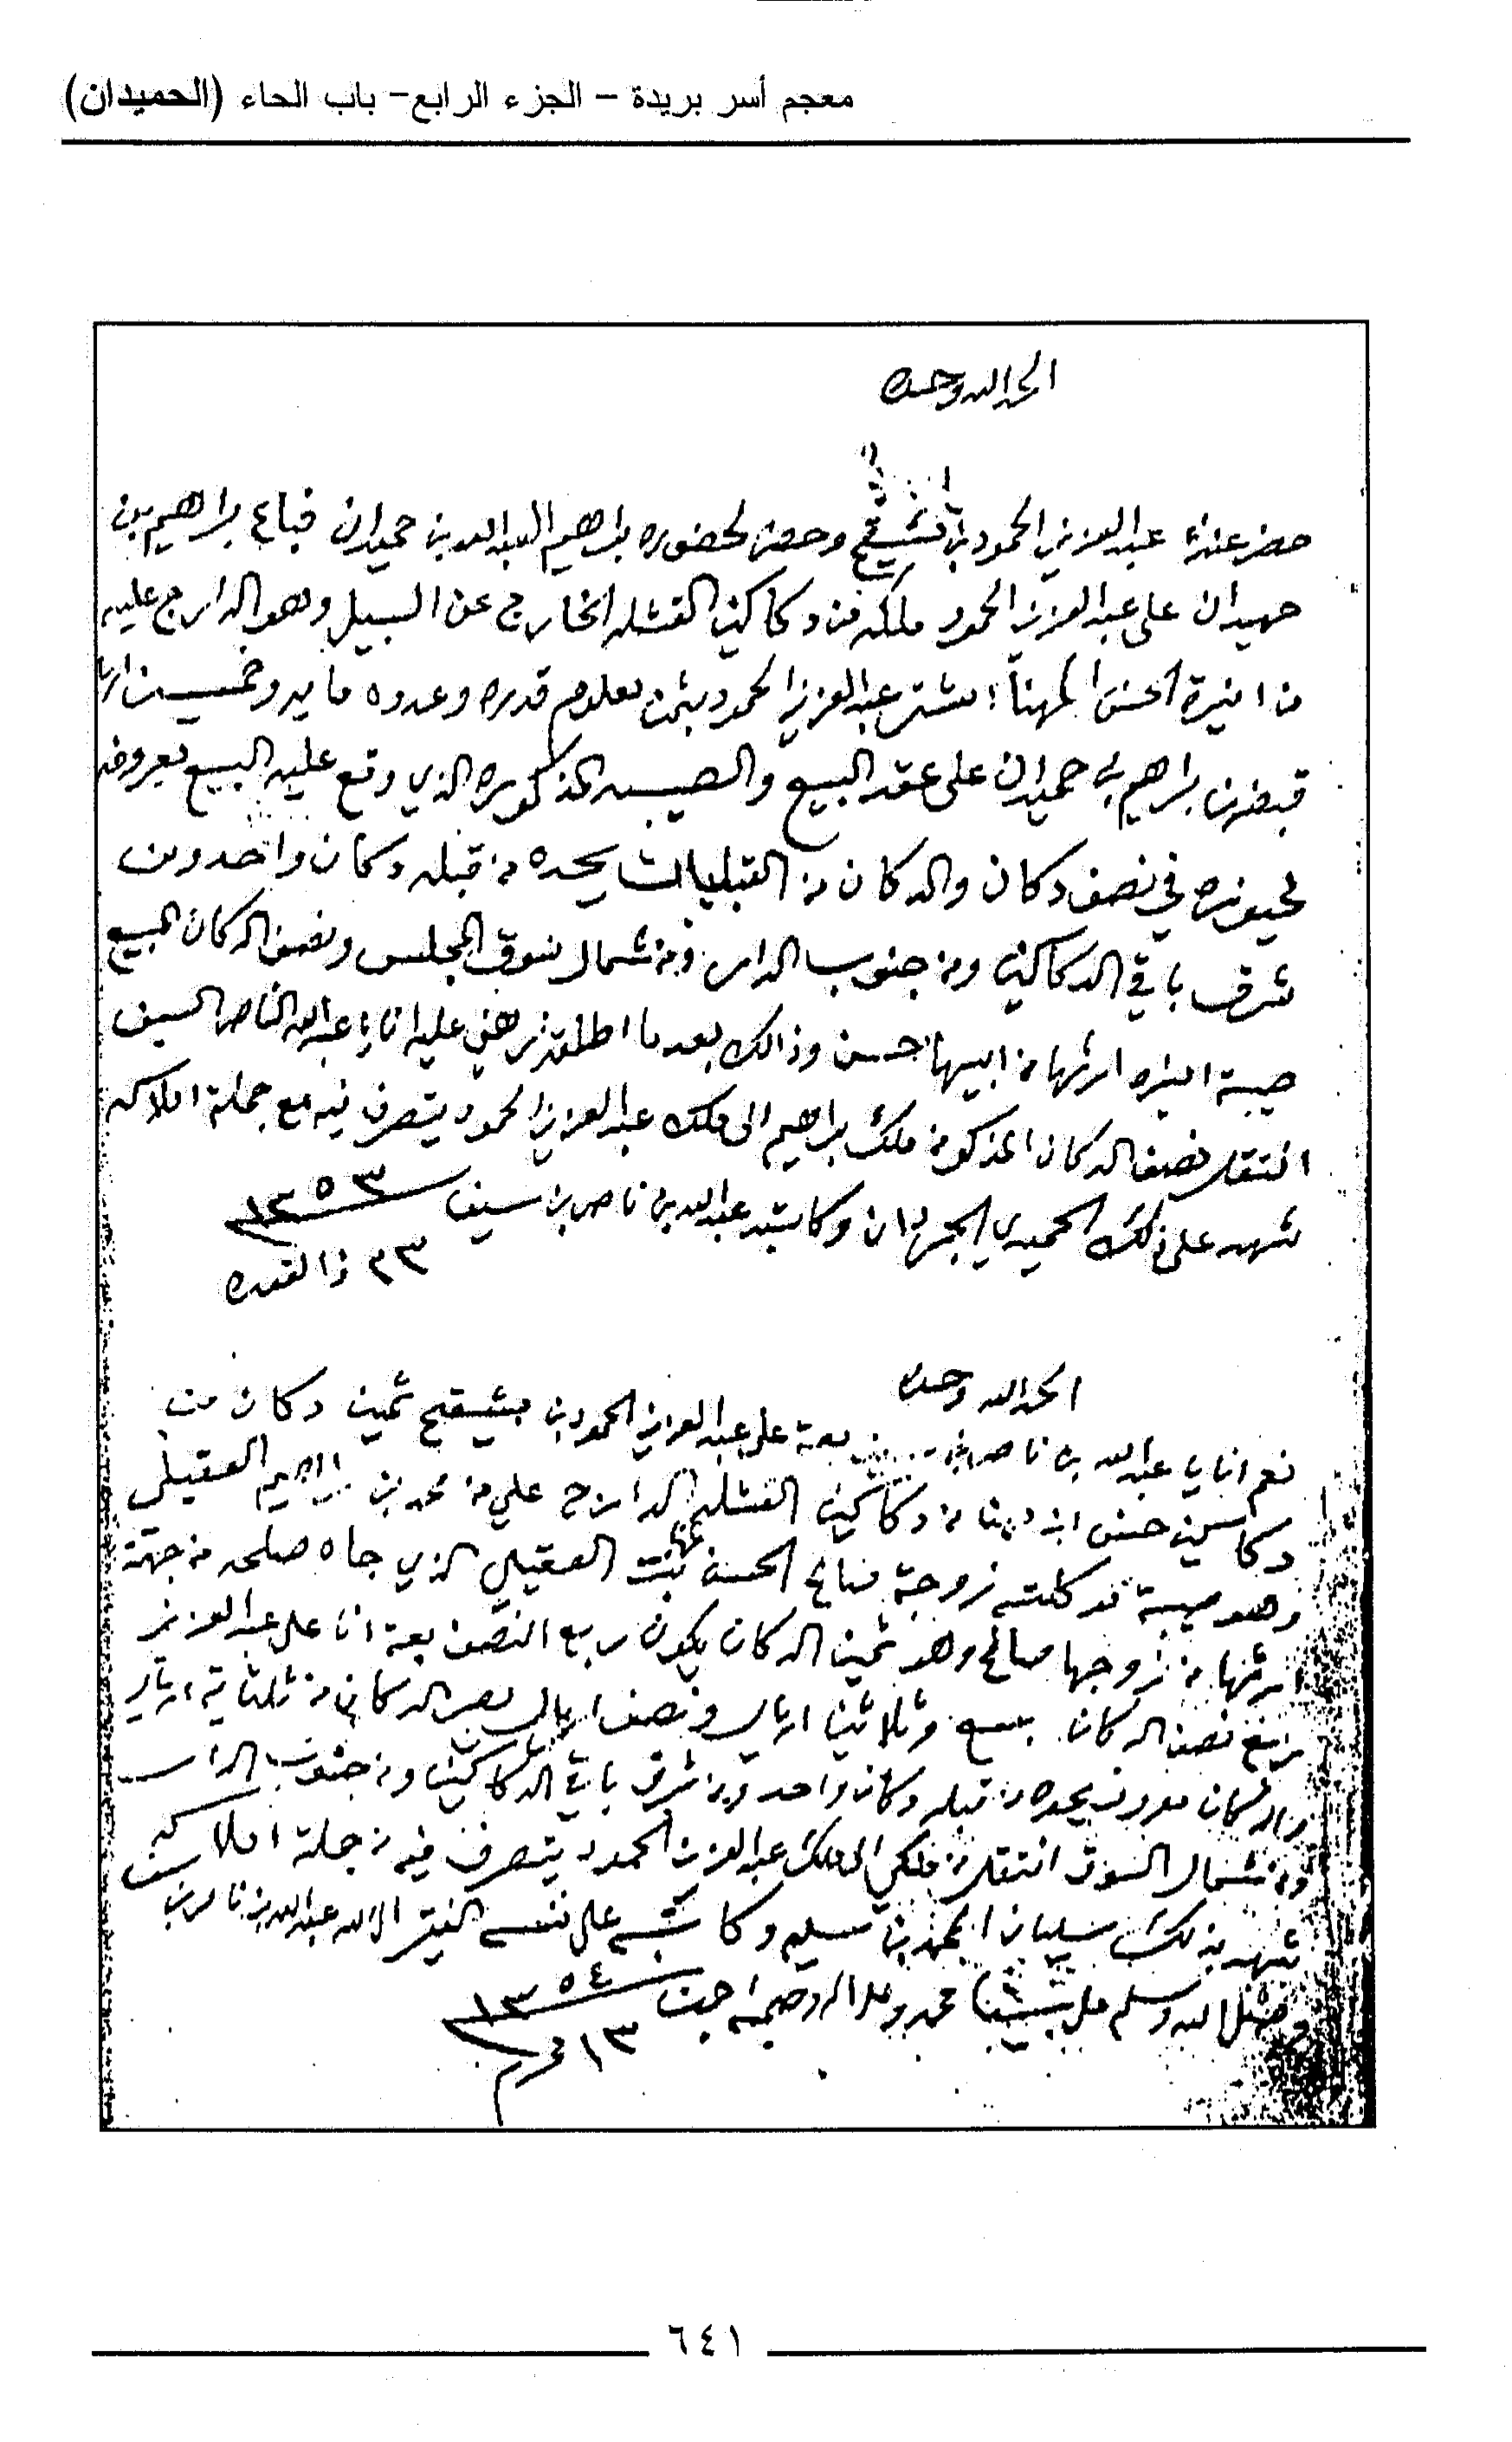 معجم أسر بريدة – الجزء الرابع – باب الحاء (الحميدان)
الحمد لله وحده
حضر عندنا عبدالعزيز الحمود بن مشيقح وحضر لحضوره براهيم العبدالله بن حميدان فباع براهيم بن
حميدان على عبدالعزيز الحمود ملكه من دكاكين القشله الخارج عن السبيل وهو الدارج عليه
من منيرة الحسن المهنا اشترى عبدالعزيز الحمود بثمن معلوم قدره وعدده مايه وخمسين اريال
قبضهن براهيم بن حميدان على عقد البيع والصيبه المذكوره الذي وقع عليه البيع معروفه
في نصف دكان والدكان من القبليات يحده من قبله دكان واحد ومن
شرق باقي الدكاكين ومن جنوب الدار ومن شمال سوق المجلس ونصف الدكان المبيع
صيبة منيره ارثها من ابيها حسن وذالك بعد ما اطلقت رهني عليه انا يا عبدالله الناصر السيف
انتقل نصف الدكان المذكور من ملك براهيم الى ملك عبدالعزيز الحمود يتصرف فيه مع جملة املاكه
شهد على ذلك الحميدي وكاتبه عبدالله بن ناصر بن سيف ١٣٥٣
٢٣ ذا القعده
الحمد لله وحده
نعم انا يا عبدالله بن ناصر بن بعت على عبدالعزيز الحمود بن مشيقح ثمين دكان من
دكاكين حسن ابن مهنا من دكاكين القشله الدارج علي من محمد بن براهيم العقيلي
وهو صيبة زوجة صالح الحسن بنت العقيلي الذي جاه صلحه من جهة
ارثها من زوجها صالح وهو ثمين الدكان يكون ربع النصف بعته انا على عبدالعزيز
ربع نصف الدكان بسبع وثلاثين اريال ونصف اريال الدكان من ثلثماية اريال
والدكان معروف يحده من قبله دكان واحد ومن شرق باقي الدكاكين ومن جنوب الدار
ومن شمال السوق انتقل من ملكي الى ملك عبدالعزيز الحمود يتصرف فيه من جملة املاكه
شهد بذلك سليمان المحمد بن سليم وكاتبه على نفسه الفقير الى الله عبدالله بن ناصر بن سيف
وصلى الله وسلم على نبينا محمد وعلى اله وصحبه اجمعين ١٣٥٤
١٣ محرم
٦٤١